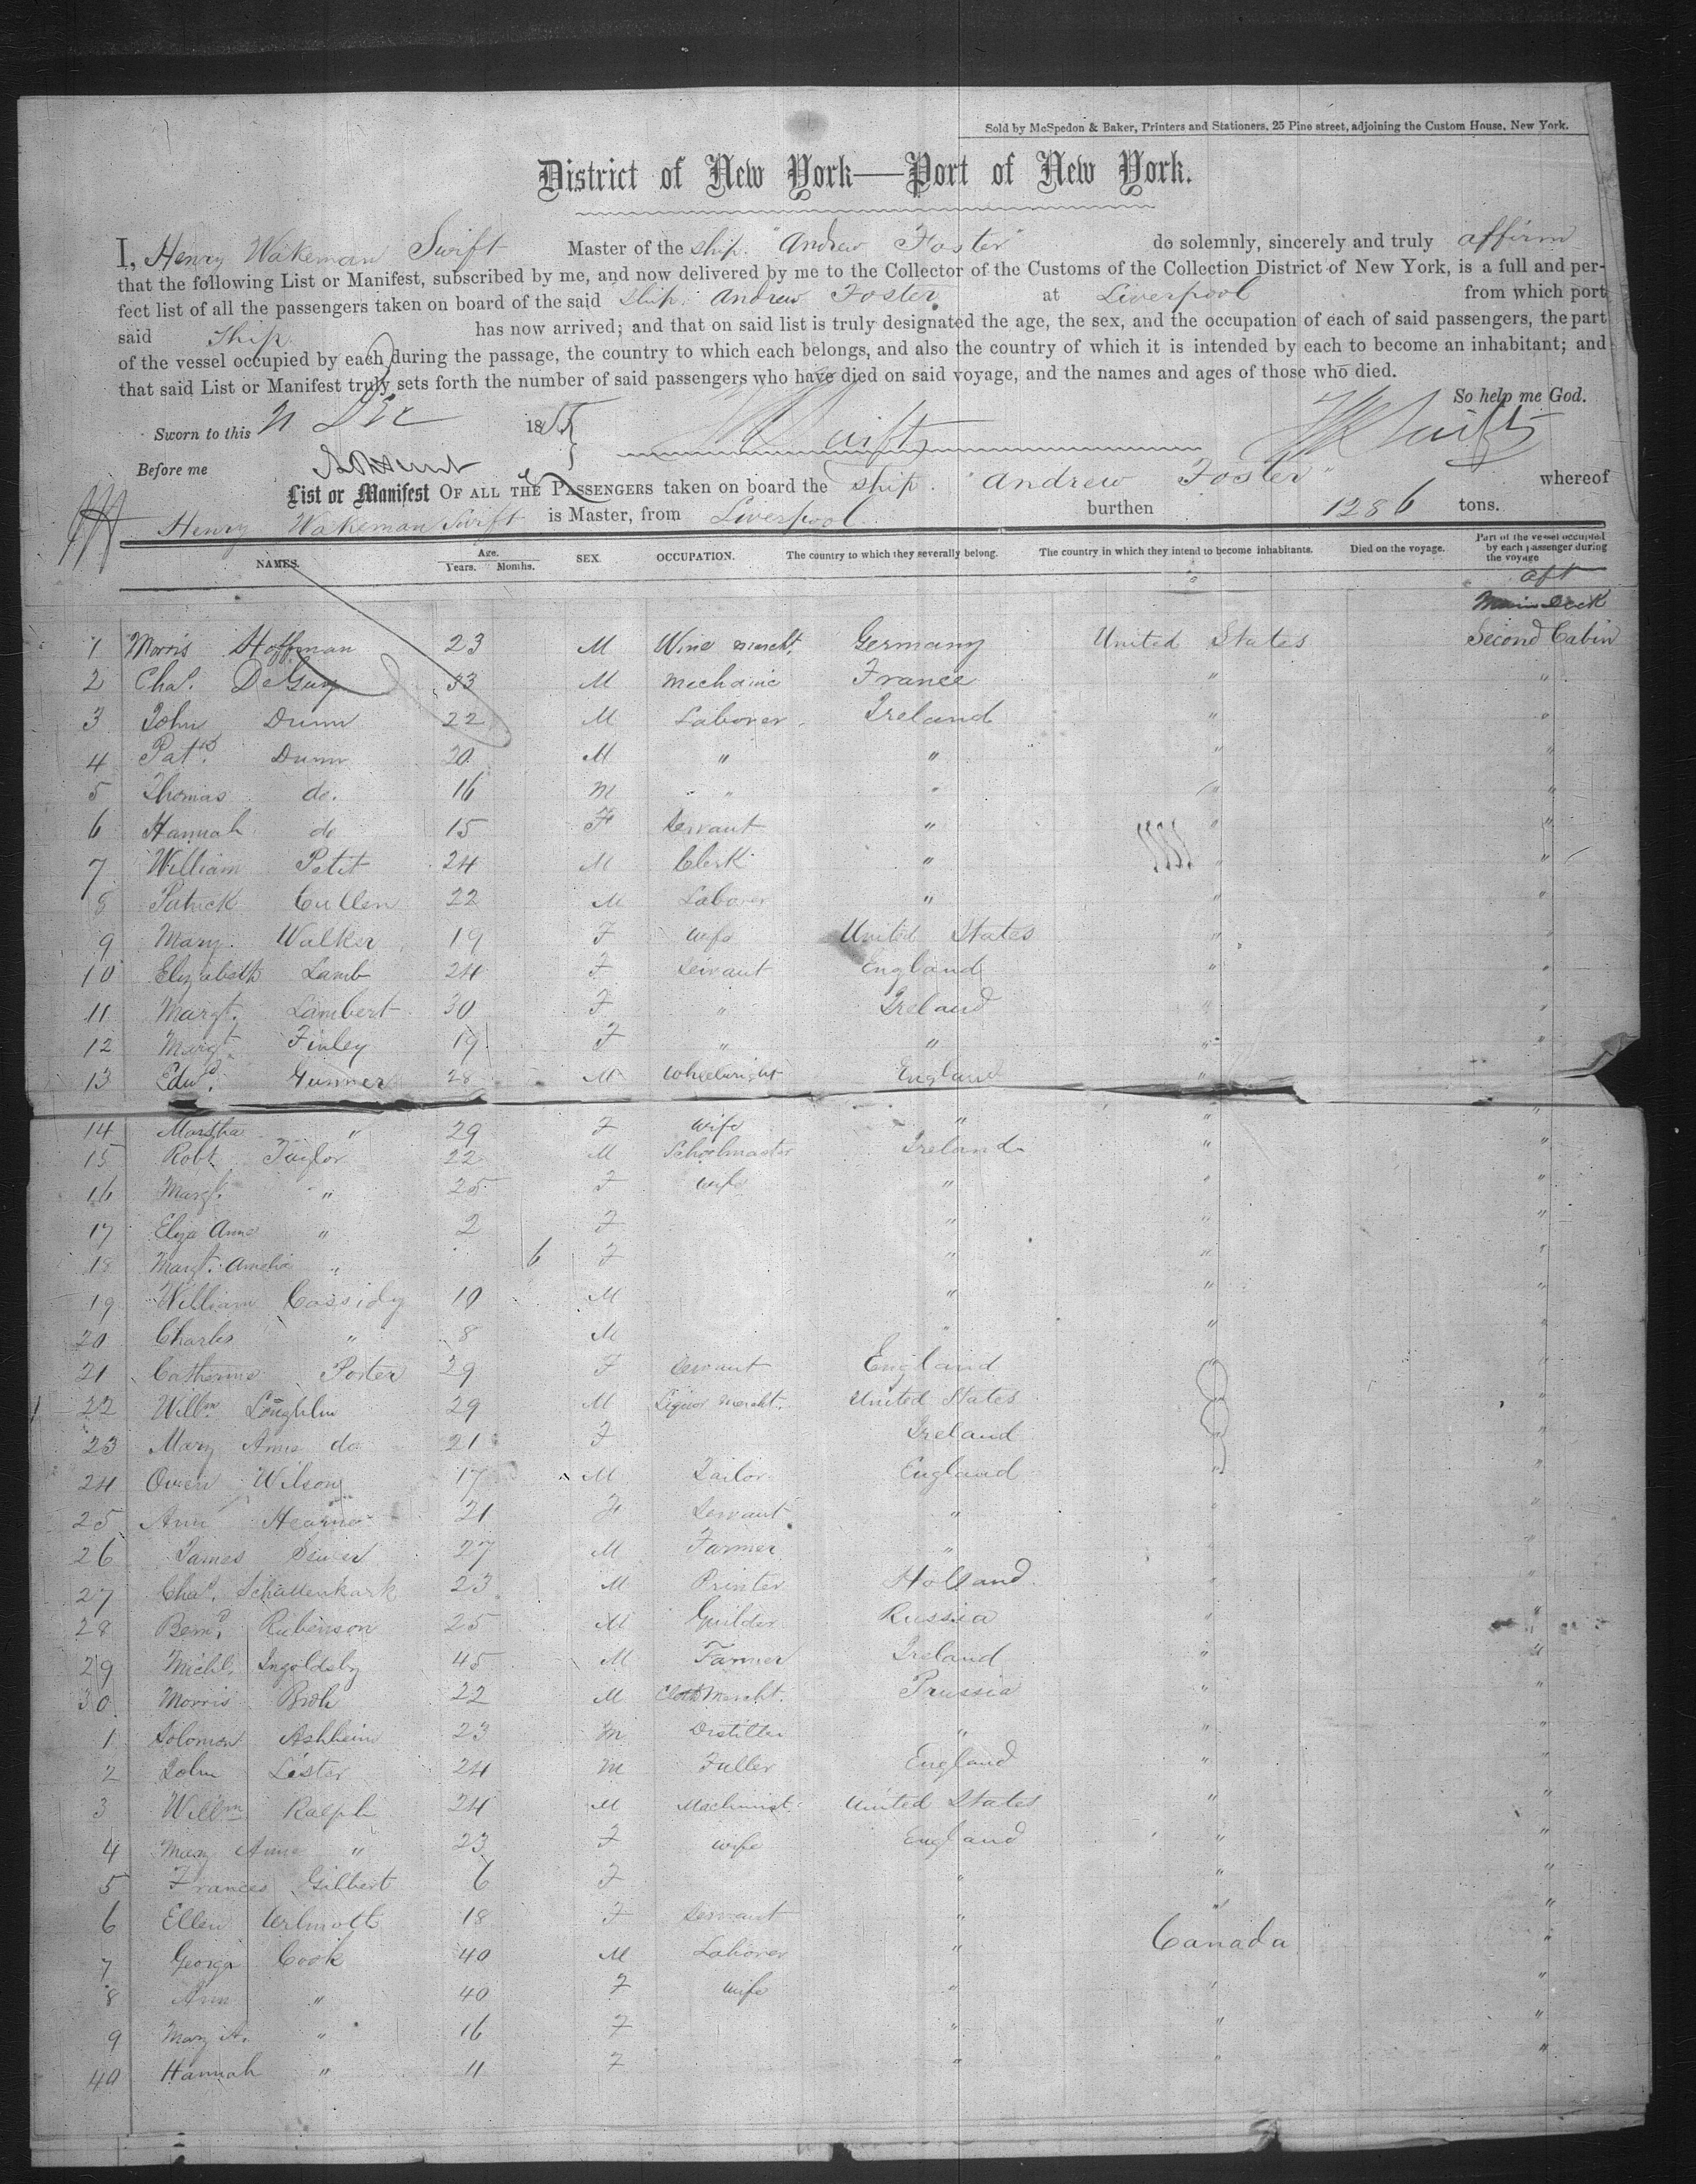 Sold by McSpedon & Baker, Printers and Stationers, 25 Pine street, adjoining the Custom House, New York.
District of New York—Port of New York.
I, Henry Wakeman Swift Master of the ship "Andrew Foster" do solemnly, sincerely and truly affirm
that the following List or Manifest, subscribed by me, and now delivered by me to the Collector of the Customs of the Collection District of New York, is a full and per-
fect list of all the passengers taken on board of the said ship Andrew Foster at Liverpool from which port
said Ship has now arrived; and that on said list is truly designated the age, the sex, and the occupation of each of said passengers, the part
of the vessel occupied by each during the passage, the country to which each belongs, and also the country of which it is intended by each to become an inhabitant; and
that said List or Manifest truly sets forth the number of said passengers who have died on said voyage, and the names and ages of those who died.
So help me God.
Sworn to this Dec 185
Before me
List or Manifest OF ALL THE PASSENGERS taken on board the ship "Andrew Foster" whereof
Henry Wakeman Swift is Master, from Liverpool burthen 1286 tons.
NAMES. Age. Years. Months. SEX. OCCUPATION. The country to which they severally belong. The country in which they intend to become inhabitants. Died on the voyage. Part of the vessel occupied by each passenger during the voyage
aft
1 Morris Hoffman 23 M Wine mercht. Germany United States Second Cabin
2 Chas. DeGuy 33 M Mechanic France " "
3 John Dunn 22 M Laborer Ireland " "
4 Patk. Dunn 20 M " " " "
5 Thomas do. 16 M " " " "
6 Hannah do 15 F Servant " " "
7 William Petit 24 M Clerk " " "
8 Patrick Cullen 22 M Laborer " " "
9 Mary Walker 19 F Wife United States " "
10 Elizabeth Lamb 24 F Servant England " "
11 Margt. Lambert 30 F " Ireland " "
12 Margt. Finley 19 F " " " "
13 Edwd. Gunner 28 M Wheelwright England "
14 Martha " 29 F Wife " " "
15 Robt Taylor 22 M Schoolmaster Ireland " "
16 Margt. " 25 F Wife " " "
17 Eliza Anne " 2 F " " "
18 Margt. Amelia " 6 F " " "
19 William Cassidy 10 M " " "
20 Charles " 8 M " " "
21 Catherine Porter 29 F Servant England " "
22 Willm. Loughlin 29 M Liquor mercht. United States " "
23 Mary Anne do 21 F Ireland " "
24 Owen Wilson 17 M Tailor England " "
25 Ann Hearne 21 F Servant " " "
26 James 27 M Farmer " " "
27 Chas. Schallenkark 23 M Printer Holland " "
28 Bernd. Rubenson 25 M Guilder Russia " "
29 Michl. Ingoldsby 45 M Farmer Ireland " "
30 Morris 22 M Cloth Mercht. Prussia " "
1 Solomon Ashheim 23 M Distiller " " "
2 John Lester 24 M Fuller England " "
3 Willm Ralph 24 M Machinist United States " "
4 Mary Anne " 23 F Wife England " "
5 Frances Gilbert 6 F " " "
6 Ellen 18 F Servant " " "
7 George Cook 40 M Laborer " Canada "
8 Ann " 40 F Wife " " "
9 Mary A. " 16 F " " "
40 Hannah " 11 F " " "